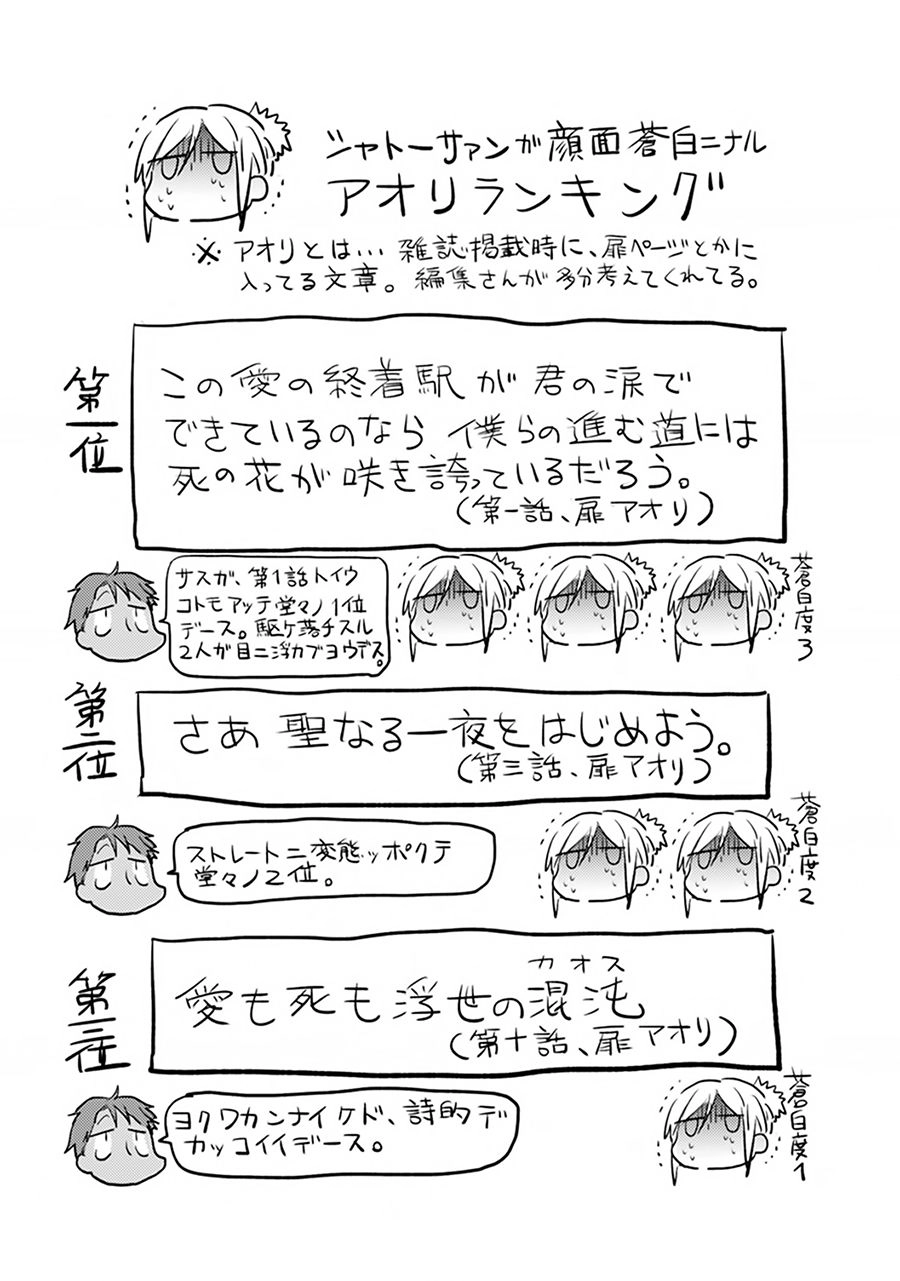 シャトーサァンが顔面蒼白ニナル
アオリランキング
※アオリとは…雑誌掲載時に、扉ページとかに
入ってる文章。編集さんが多分考えてくれてる。
第一位
この愛の終着駅が君の涙で
できているのなら 僕らの進む道には
死の花が咲き誇っているだろう。
(第一話、扉アオリ)
サスガ、第1話トイウ
コトモアッテ堂々ノ1位
デース。駆ケ落チスル
2人が目ニ浮カブヨウデス。
蒼白度3
第二位
さあ 聖なる一夜をはじめよう。
(第三話、扉アオリ)
ストレートニ変態ッポクテ
堂々ノ2位。
蒼白度2
第三位
愛も死も浮世の混沌
カオス
(第十話、扉アオリ)
ヨクワカンナイケド、詩的デ
カッコイイデース。
蒼白度1